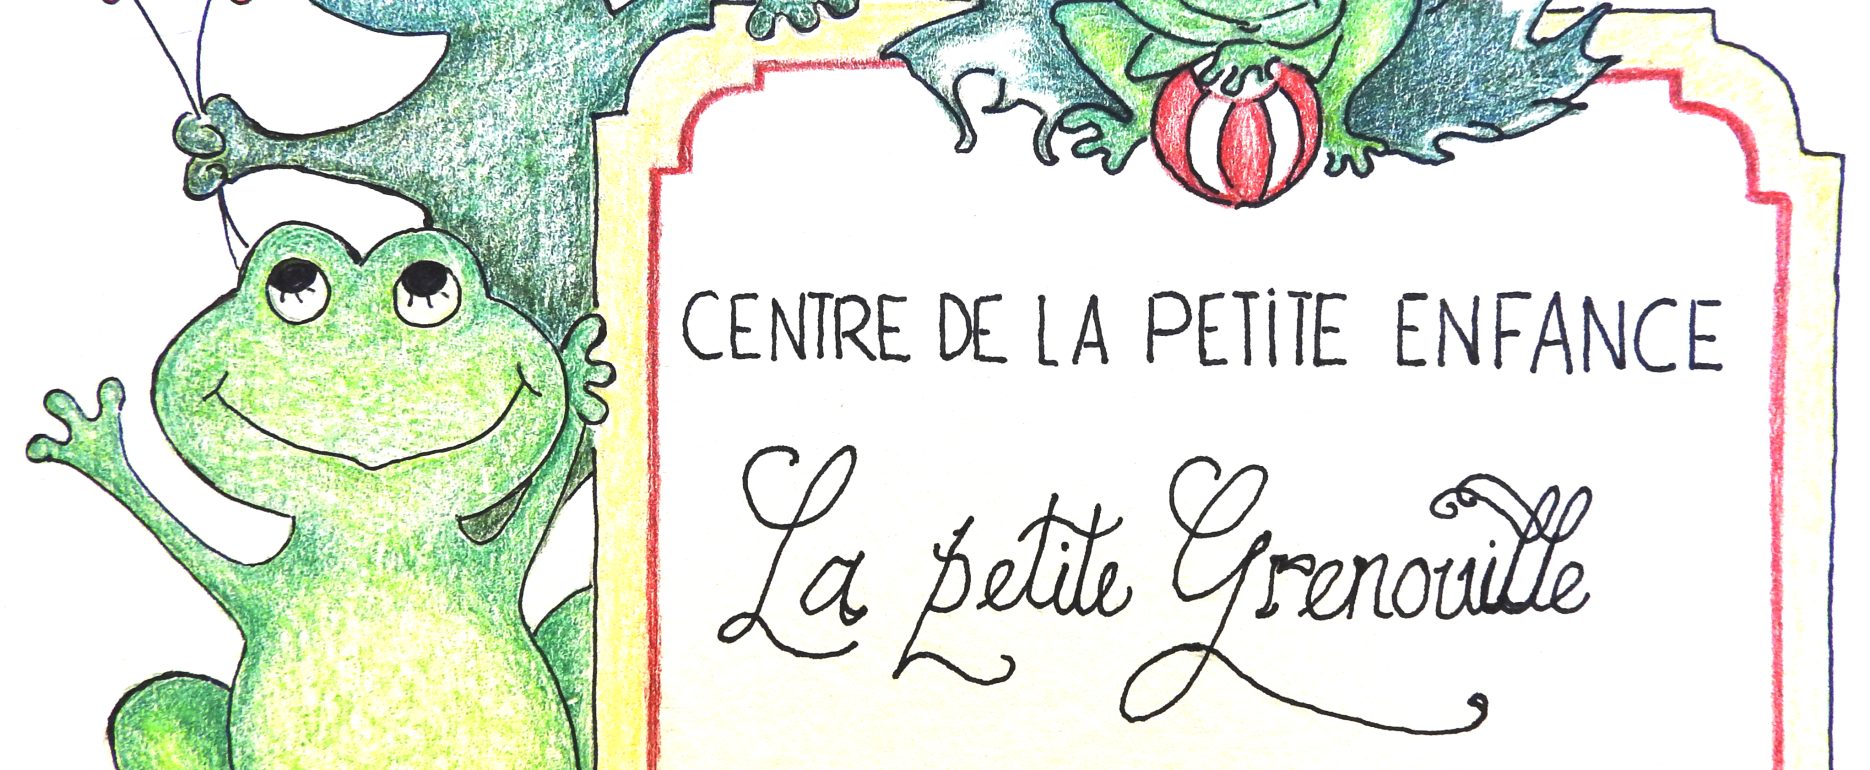 CENTRE DE LA PETITE ENFANCE
La petite Grenouille